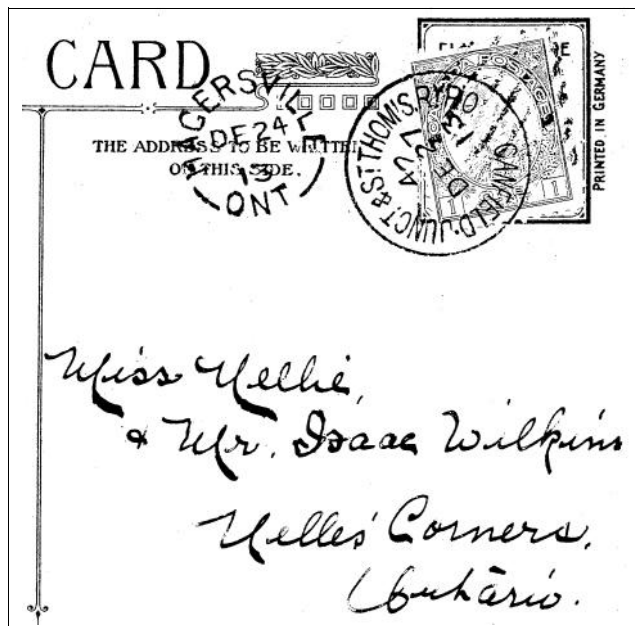 CARD
THE ADDRESS TO BE WRITTEN
ON THIS SIDE.
HAGERSVILLE
DE 24
13
ONT
CANFIELD·JUNCT.& ST THOMS.RY.PO
42
DE 27
13
POSTAGE
1 1
PRINTED IN GERMANY
Miss Nellie,
& Mr. Isaac Wilkins
Nelles' Corners,
Ontario.